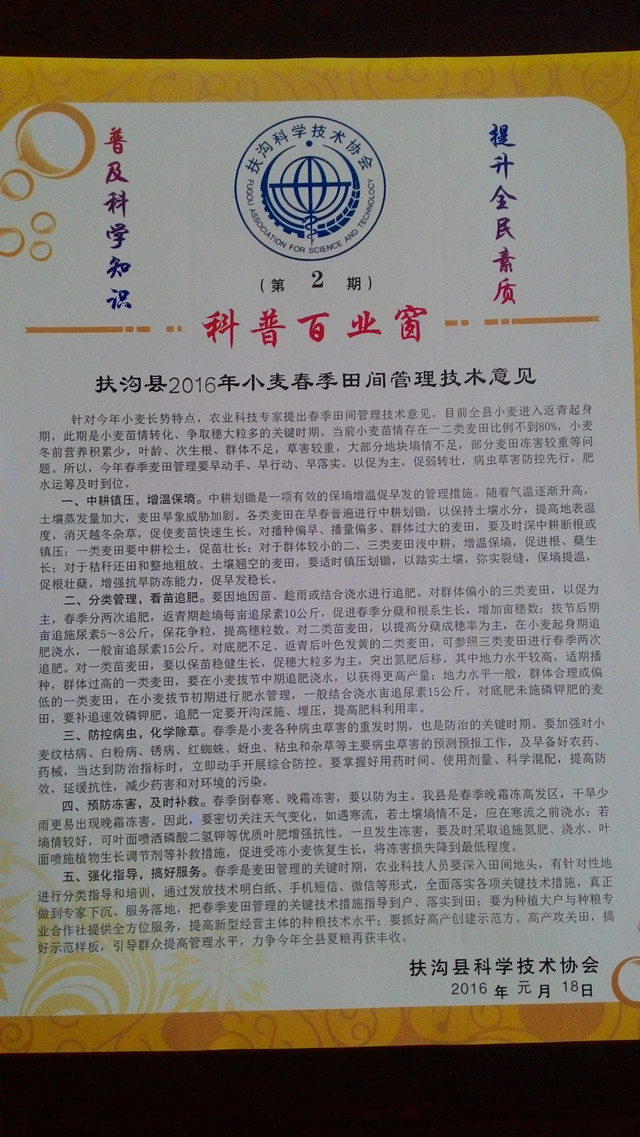 普及科学知识
扶沟科学技术协会
FUGOU ASSOCIATION FOR SCIENCE AND TECHNOLOGY
提升全民素质
(第 2 期)
科普百业窗
扶沟县2016年小麦春季田间管理技术意见
针对今年小麦长势特点，农业科技专家提出春季田间管理技术意见。目前全县小麦进入返青起身
期，此期是小麦苗情转化、争取穗大粒多的关键时期。当前小麦苗情存在一二类麦田比例不到80%，小麦
冬前营养积累少，叶龄、次生根、群体不足，草害较重，大部分地块墒情不足，部分麦田冻害较重等问
题。所以，今年春季麦田管理要早动手、早行动、早落实。以促为主，促弱转壮，病虫草害防控先行，肥
水运筹及时到位。
一、中耕镇压，增温保墒。中耕划锄是一项有效的保墒增温促早发的管理措施。随着气温逐渐升高，
土壤蒸发量加大，麦田旱象威胁加剧。各类麦田在早春普遍进行中耕划锄，以保持土壤水分，提高地表温
度，消灭越冬杂草，促使麦苗快速生长。对播种偏早、播量偏多、群体过大的麦田，要及时深中耕断根或
镇压；一类麦田要中耕松土，促苗壮长；对于群体较小的二、三类麦田浅中耕，增温保墒，促进根、蘖生
长；对于秸秆还田和整地粗放、土壤翘空的麦田，要适时镇压划锄，以踏实土壤，弥实裂缝，保墒提温，
促根壮蘖，增强抗旱防冻能力，促早发稳长。
二、分类管理，看苗追肥。要因地因苗、趁雨或结合浇水进行追肥。对群体偏小的三类麦田，以促为
主，春季分两次追肥，返青期趁墒每亩追尿素10公斤，促进春季分蘖和根系生长，增加亩穗数；拔节后期
亩追施尿素5~8公斤，保花争粒，提高穗粒数。对二类苗麦田，以提高分蘖成穗率为主，在小麦起身期追
肥浇水，一般亩追尿素15公斤。对底肥不足、返青后叶色发黄的二类麦田，可参照三类麦田进行春季两次
追肥。对一类苗麦田，要以保苗稳健生长，促穗大粒多为主，突出氮肥后移。其中地力水平较高，适期播
种，群体过高的一类麦田，要在小麦拔节中期追肥浇水，以获得更高产量；地力水平一般，群体合理或偏
低的一类麦田，在小麦拔节初期进行肥水管理，一般结合浇水亩追尿素15公斤。对底肥未施磷钾肥的麦
田，要补追速效磷钾肥。追肥一定要开沟深施、埋压，提高肥料利用率。
三、防控病虫，化学除草。春季是小麦各种病虫草害的重发时期，也是防治的关键时期。要加强对小
麦纹枯病、白粉病、锈病、红蜘蛛、蚜虫、粘虫和杂草等主要病虫草害的预测预报工作，及早备好农药、
药械，当达到防治指标时，立即动手开展综合防控。要掌握好用药时间、使用剂量、科学混配，提高防
效，延缓抗性，减少药害和对环境的污染。
四、预防冻害，及时补救。春季倒春寒、晚霜冻害，要以防为主。我县是春季晚霜冻高发区，干旱少
雨更易出现晚霜冻害。因此，要密切关注天气变化，如遇寒流，若土壤墒情不足，应在寒流之前浇水；若
墒情较好，可叶面喷洒磷酸二氢钾等优质叶肥增强抗性。一旦发生冻害，要及时采取追施氮肥、浇水、叶
面喷施植物生长调节剂等补救措施，促进受冻小麦恢复生长，将冻害损失降到最低程度。
五、强化指导，搞好服务。春季是麦田管理的关键时期，农业科技人员要深入田间地头，有针对性地
进行分类指导和培训，通过发放技术明白纸、手机短信、微信等形式，全面落实各项关键技术措施，真正
做到专家下沉、服务落地，把春季麦田管理的关键技术措施指导到户、落实到田；要为种植大户与种粮专
业合作社提供全方位服务，提高新型经营主体的种粮技术水平；要抓好高产创建示范方、高产攻关田，搞
好示范样板，引导群众提高管理水平，力争今年全县夏粮再获丰收。
扶沟县科学技术协会
2016 年 元 月 18日